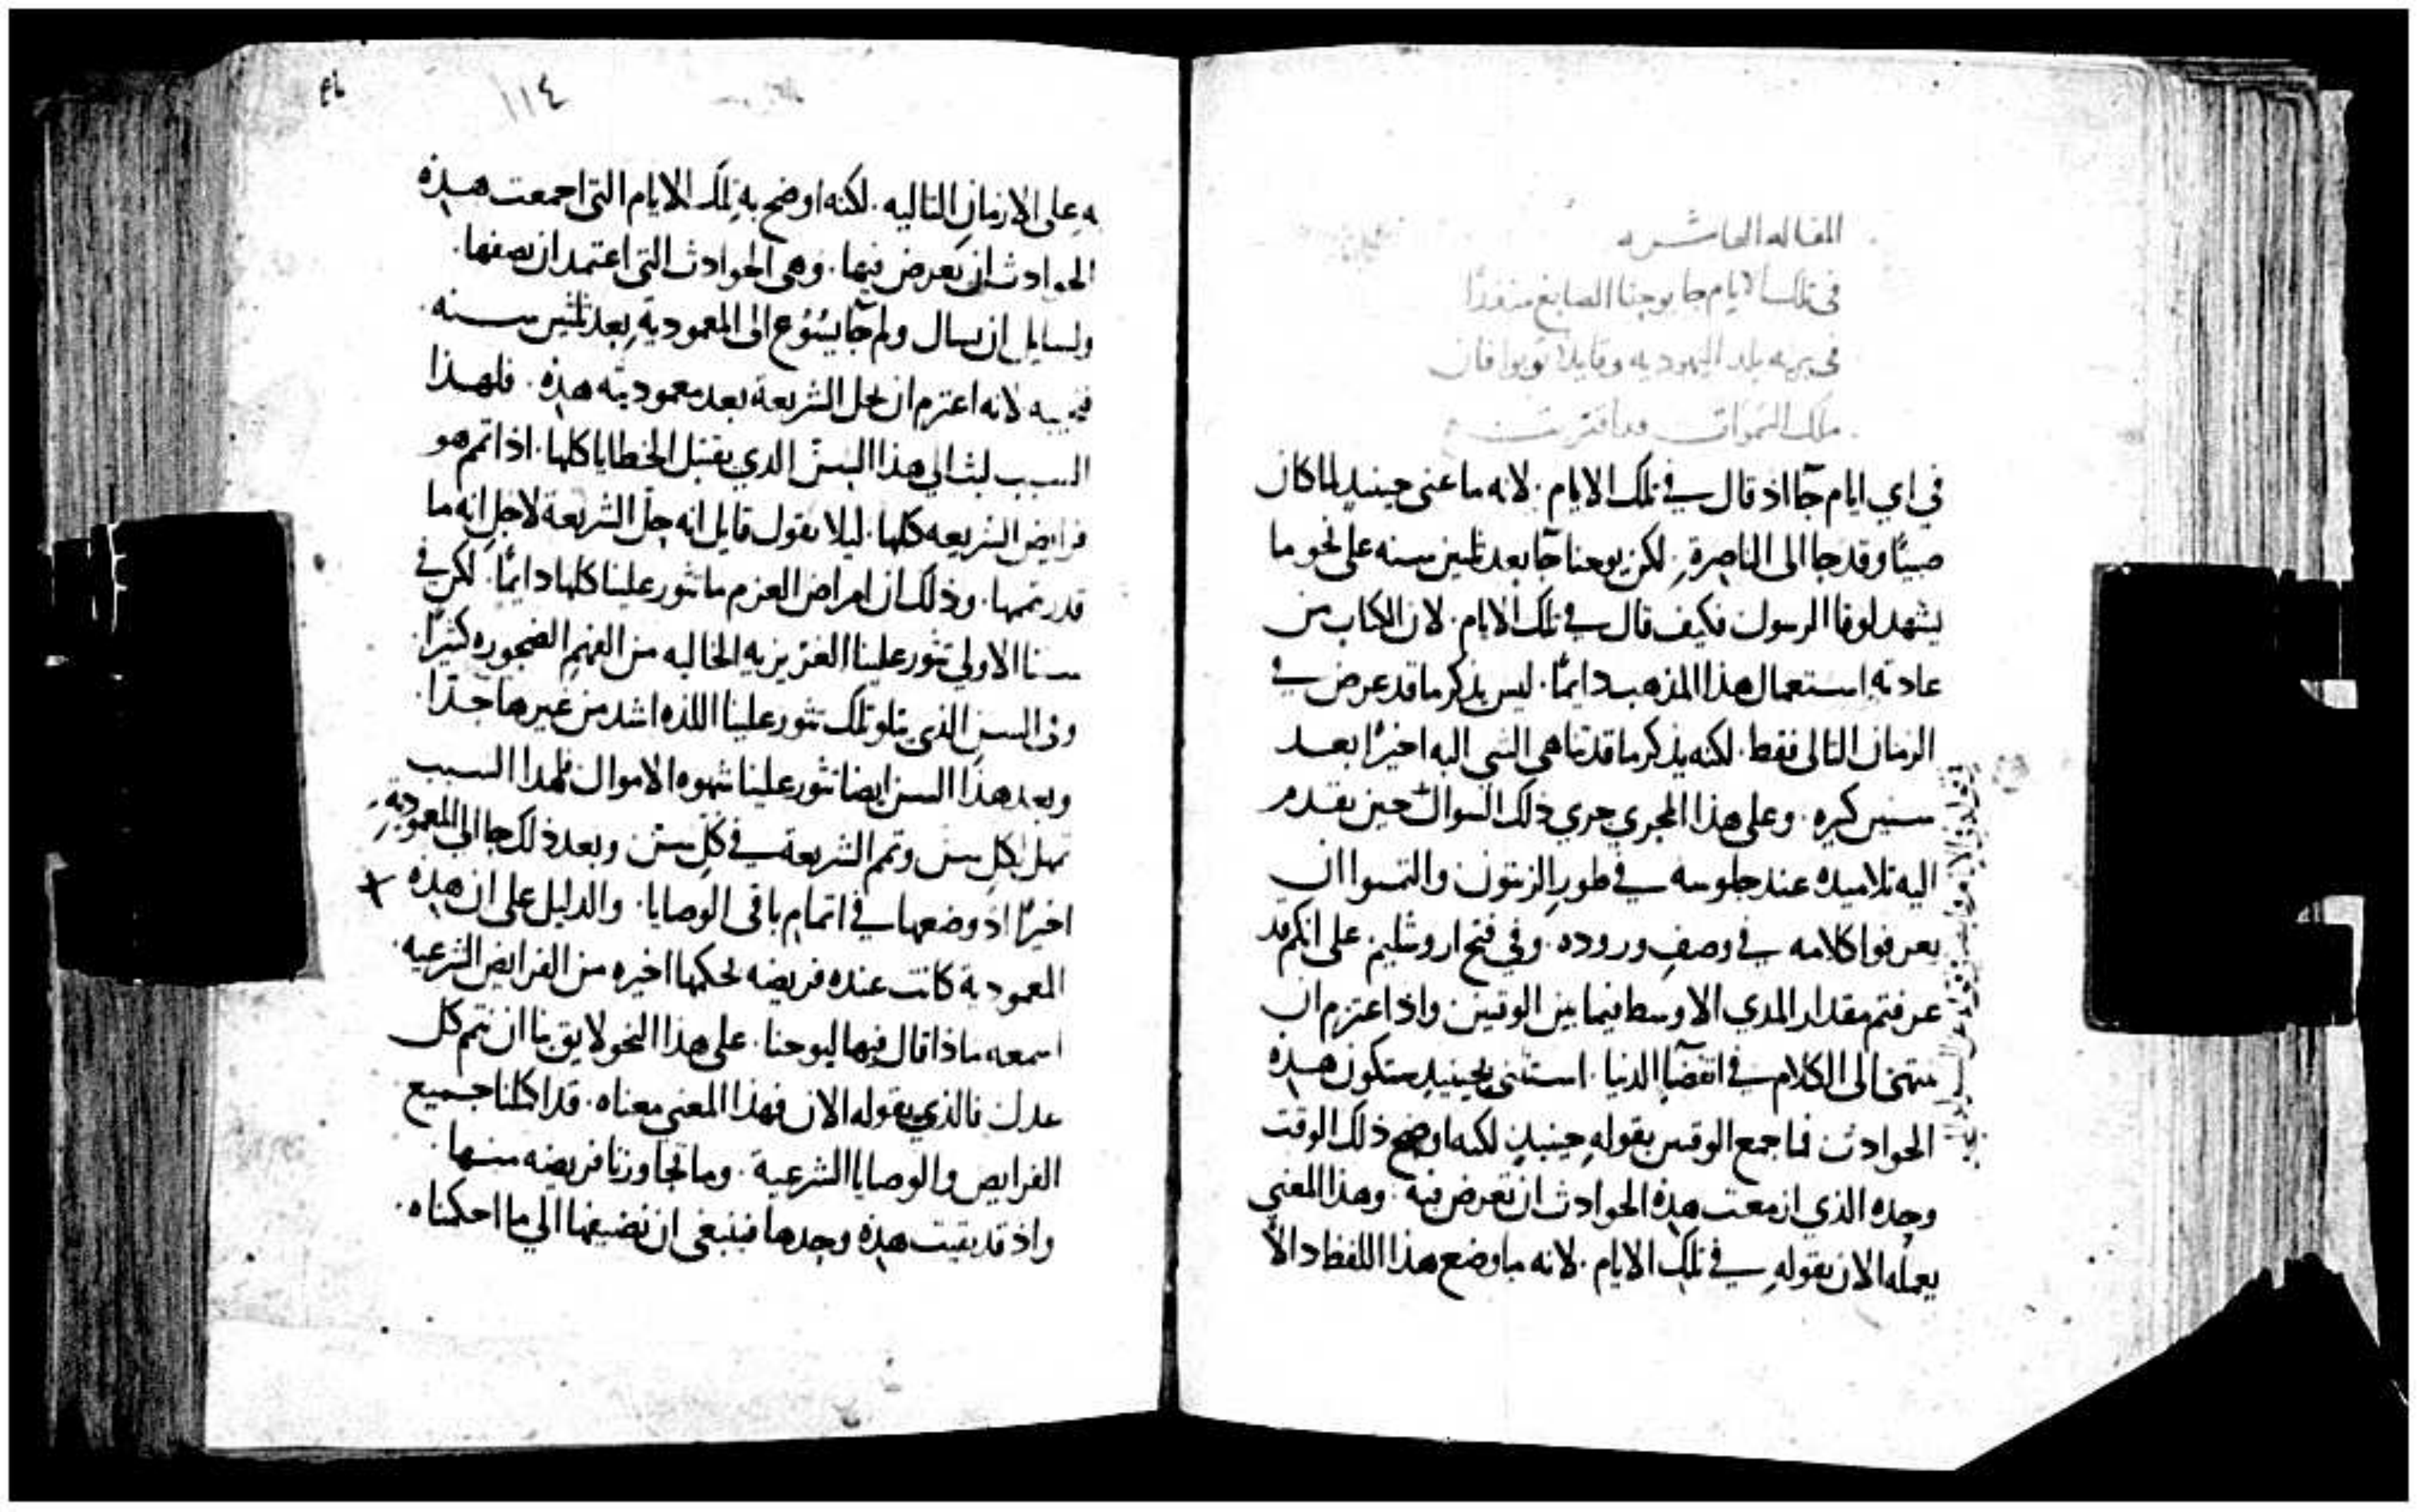 المقاله العاشره
في تلك الايام جا يوحنا الصابغ منذرًا
في بريه بلد اليهوديه وقايلا توبوا فان
ملك السموات قد اقتربت
في اي ايام جآ اذ قال في تلك الايام. لانه ما عنى حينيد لما كان
صبيًا وقد جا الى الناصرة. لكن يوحنا جآ بعد ثلثين سنه على نحو ما
يشهد لوقا الرسول فكيف قال في تلك الايام. لان الكتاب من
عادته استعمال هذا المذهب دايمًا. ليس يذكر ما قد عرض في
الزمان التالى فقط. لكنه يذكر ما قد تناهى الشي اليه اخيرًا بعد
سنين كثيره. وعلى هذا المجري جري ذلك السوال حين تقدم
اليه تلاميده عند جلوسه في طور الزيتون والتمسوا ان
يعرفوا كلامه في وصف وروده. وفي فتح اروشليم على انكم قد
عرفتم مقدار المدي الاوسط فيما بين الوقتين واذ اعتزم ان
ينتهى الى الكلام في انقضآ الدنيا. استثنى بحينيد ستكون هذه
الحوادث فما جمع الوقتين بقوله حينيد لكنه اوضح ذلك الوقت
وحده الذي ازمعت هذه الحوادث ان تعرض فيه. وهذا المعني
يعمله الان بقوله في تلك الايام. لانه ما وضع هذا اللفظ دالاً
١١٤
به على الازمان التاليه. لكنه اوضح به تلك الايام التى اجمعت هذه
الحوادث ان تعرض فيها. وهى الحوادث التى اعتمد ان يصفها.
ولسايل ان يسال ولم جآ يسوع الى المعمودية بعد ثلثين سنه.
فنجيبه لانه اعتزم ان يحل الشريعة بعد معموديته هذه. فلهذا
السبب لبث الى هذا السن الذي يقتبل الخطايا كلها. اذ اتم هو
فرايض الشريعه كلها. ليلا يقول قايل انه حل الشريعة لاجل انه ما
قدر يتمها. وذلك ان امراض العزم ما تثور علينا كلها دايمًا. لكن في
سننا الاولي تثور علينا الغريزيه الخاليه من الفهم الضجوره كثيرًا.
وفى السن الذي يتلو تلك تثور علينا اللذه اشد من غيرها جدًا.
وبعد هذا السن ايضا تثور علينا شهوه الاموال فلهذا السبب
تمهل لكل سن وتمم الشريعة في كل سن وبعد ذلك جا الى المعمودية.
اخيرًا اذ وضعها في اتمام باقى الوصايا. والدليل على ان هذه
المعمودية كانت عنده فريضه لحكمها اخيره من الفرايض الشرعيه.
اسمعه ماذا قال فيها ليوحنا. على هذا النحو لايق بنا ان نتمم كل
عدل فالذي يقوله الان فهذا المعنى معناه. قد اكملنا جميع
الفرايض والوصايا الشرعية. وما تجاوزنا فريضه منها.
واذ قد بقيت هذه وحدها فينبغى ان نضيفها الي ما احكمناه.